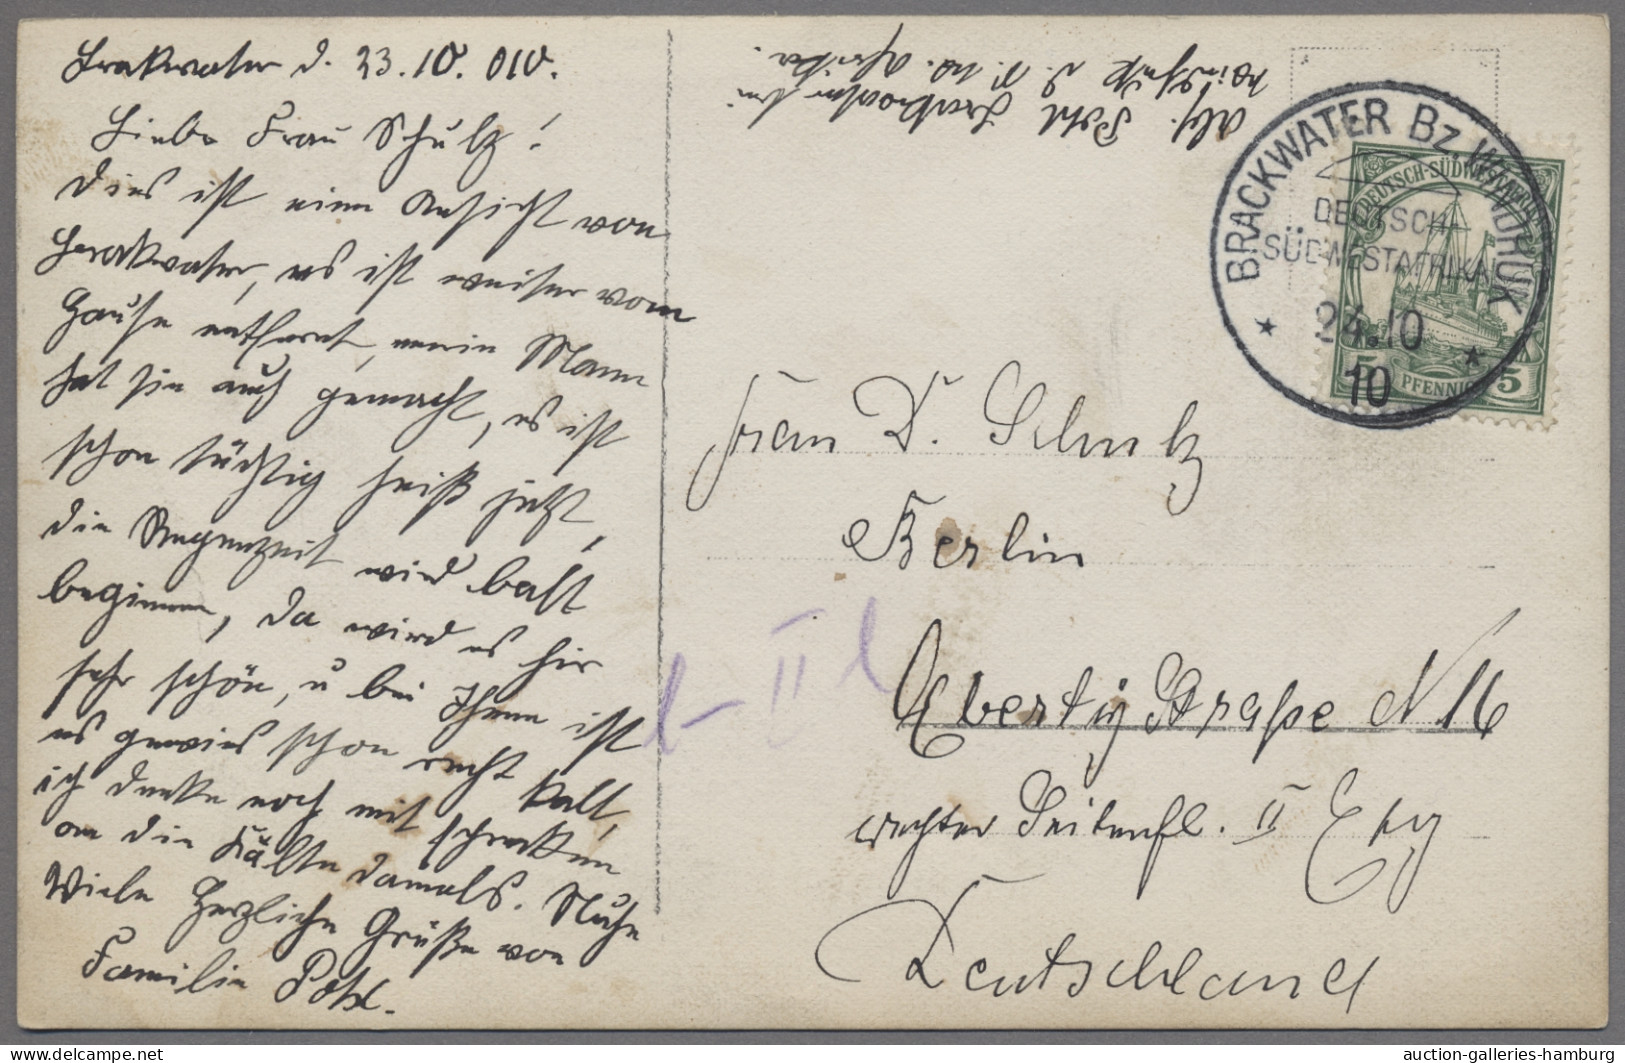 Brakwater d. 23.10.010.
Liebe Frau Schulz!
Dies ist eine Ansicht von
Brakwater, es ist weiter vom
Hause entfernt, mein Mann
hat sie auch gemacht, es ist
schon tüchtig heiß jetzt,
die Regenzeit wird balt
beginnen, da wird es hir
sehr schön, u bei Ihnen ist
es gewies schon recht kalt,
ich denke noch mit schrekken
an die Kälte damals. Nuhn
Viele Herzliche Grüße von
Familie Pohl.
Abs. Pohl Brakwater bei
Windhuk D. S. W. Afrika.
BRACKWATER Bz. WINDHUK
DEUTSCH-
SÜDWESTAFRIKA
24.10
10
DEUTSCH-SÜDWESTAFRIKA
5 PFENNIG 5
Frau D. Schulz
Berlin
Ebertystraße N 16
rechter Seitenfl. II
Deutschland
II
auction-galleries-hamburg